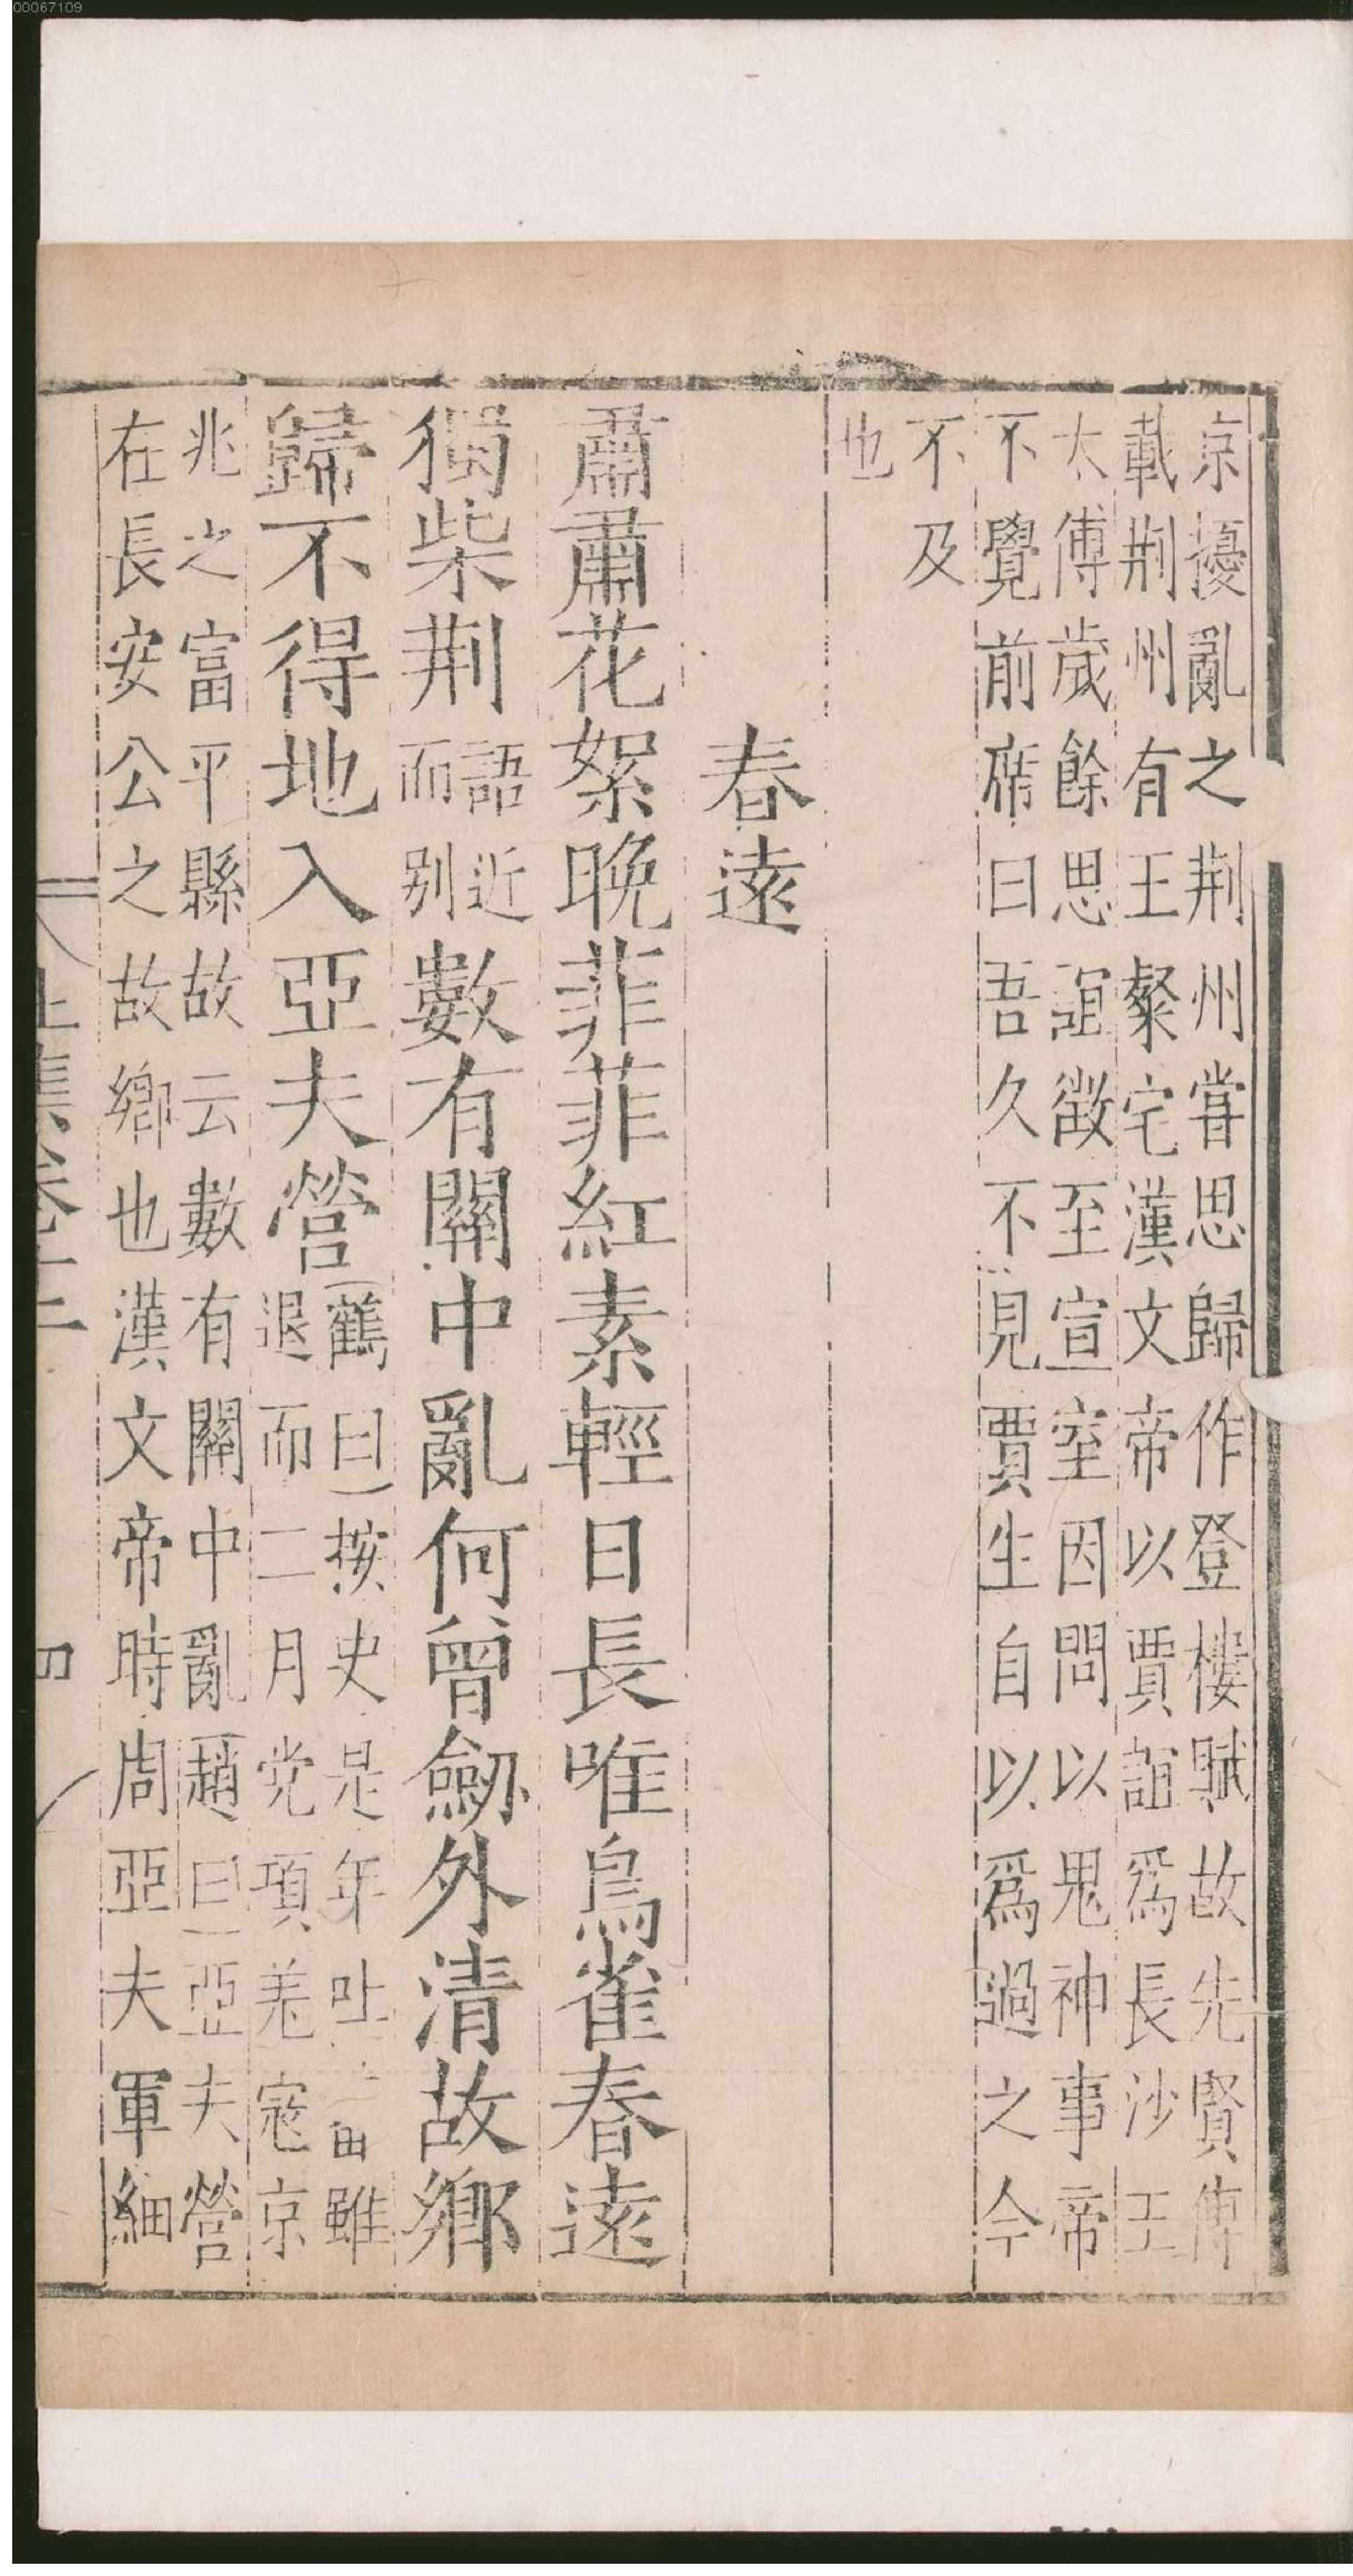 00067109
京擾亂之荆州甞思歸作登樓賦故先賢傳
載荆州有王粲宅漢文帝以賈誼爲長沙王
太傅歲餘思誼徴至宣室因問以鬼神事帝
不覺前席曰吾久不見賈生自以爲過之今
不及
也
春遠
肅肅花絮晚菲菲紅素輕日長唯鳥雀春遠
獨柴荆
語近
而别
數有關中亂何曾劔外清故鄉
歸不得地入亞夫營
鶴曰按史是年吐雖
退而二月党項羌寇京
兆之富平縣故云數有關中亂趙曰亞夫營
在長安公之故鄉也漢文帝時周亞夫軍細
上集卷十二
四